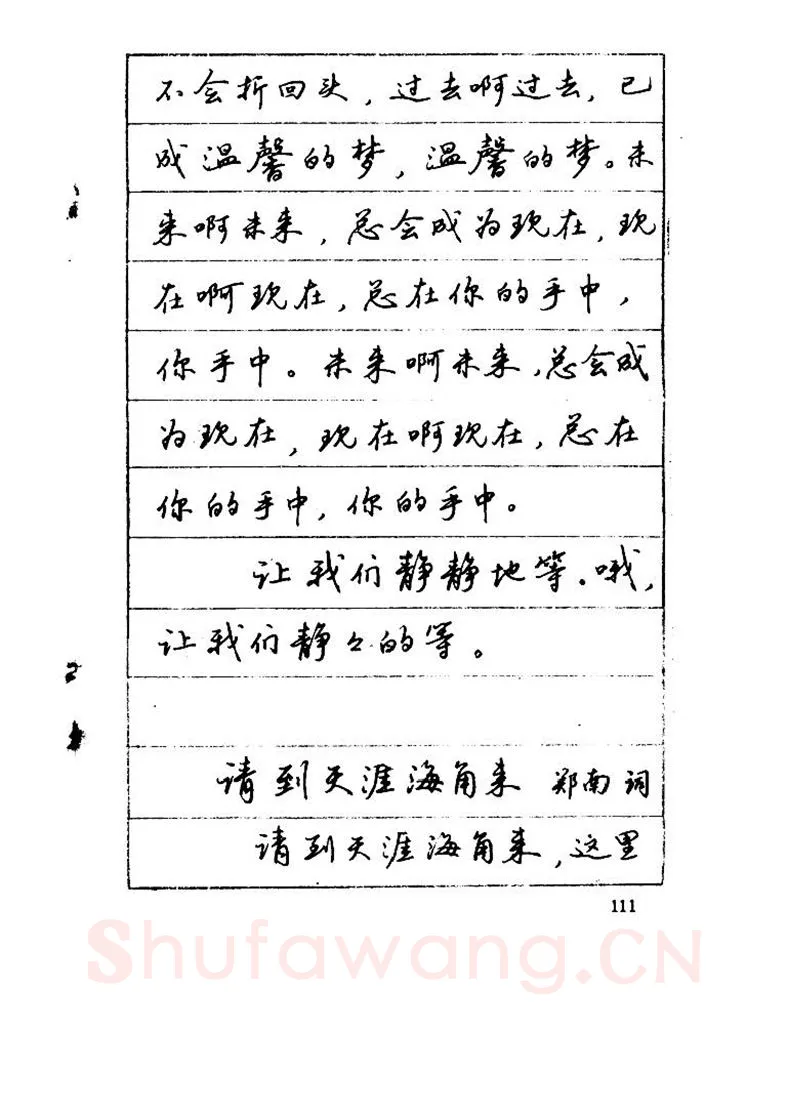 不会折回头，过去啊过去，已
成温馨的梦，温馨的梦。未
来啊未来，总会成为现在，现
在啊现在，总在你的手中，
你手中。未来啊未来，总会成
为现在，现在啊现在，总在
你的手中，你的手中。
让我们静静地等。哦，
让我们静々的等。
请到天涯海角来 郑南词
请到天涯海角来，这里
111
Shufawang.CN